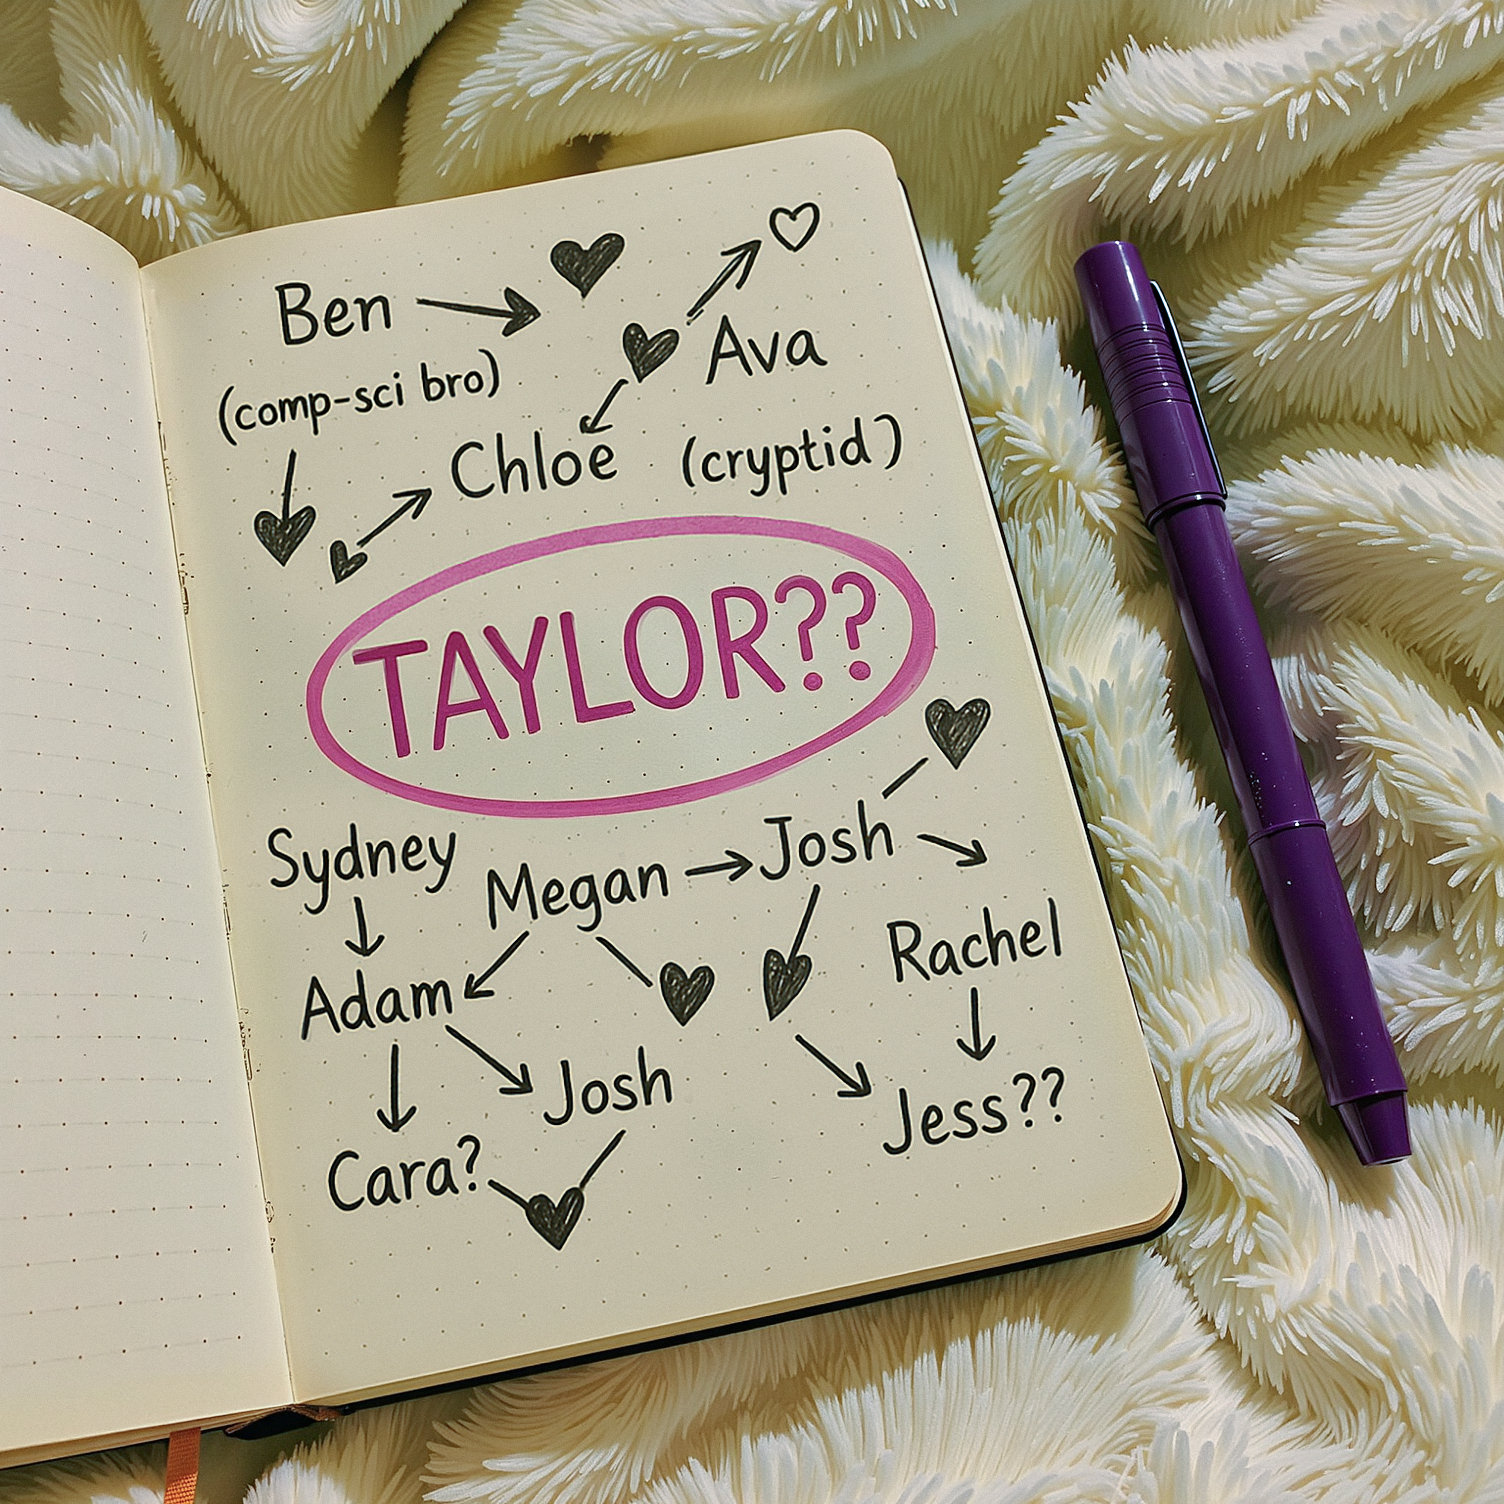 Ben
Ava
(comp-sci bro)
Chloe
(cryptid)
TAYLOR??
Sydney
Megan
Josh
Rachel
Adam
Josh
Jess??
Cara?